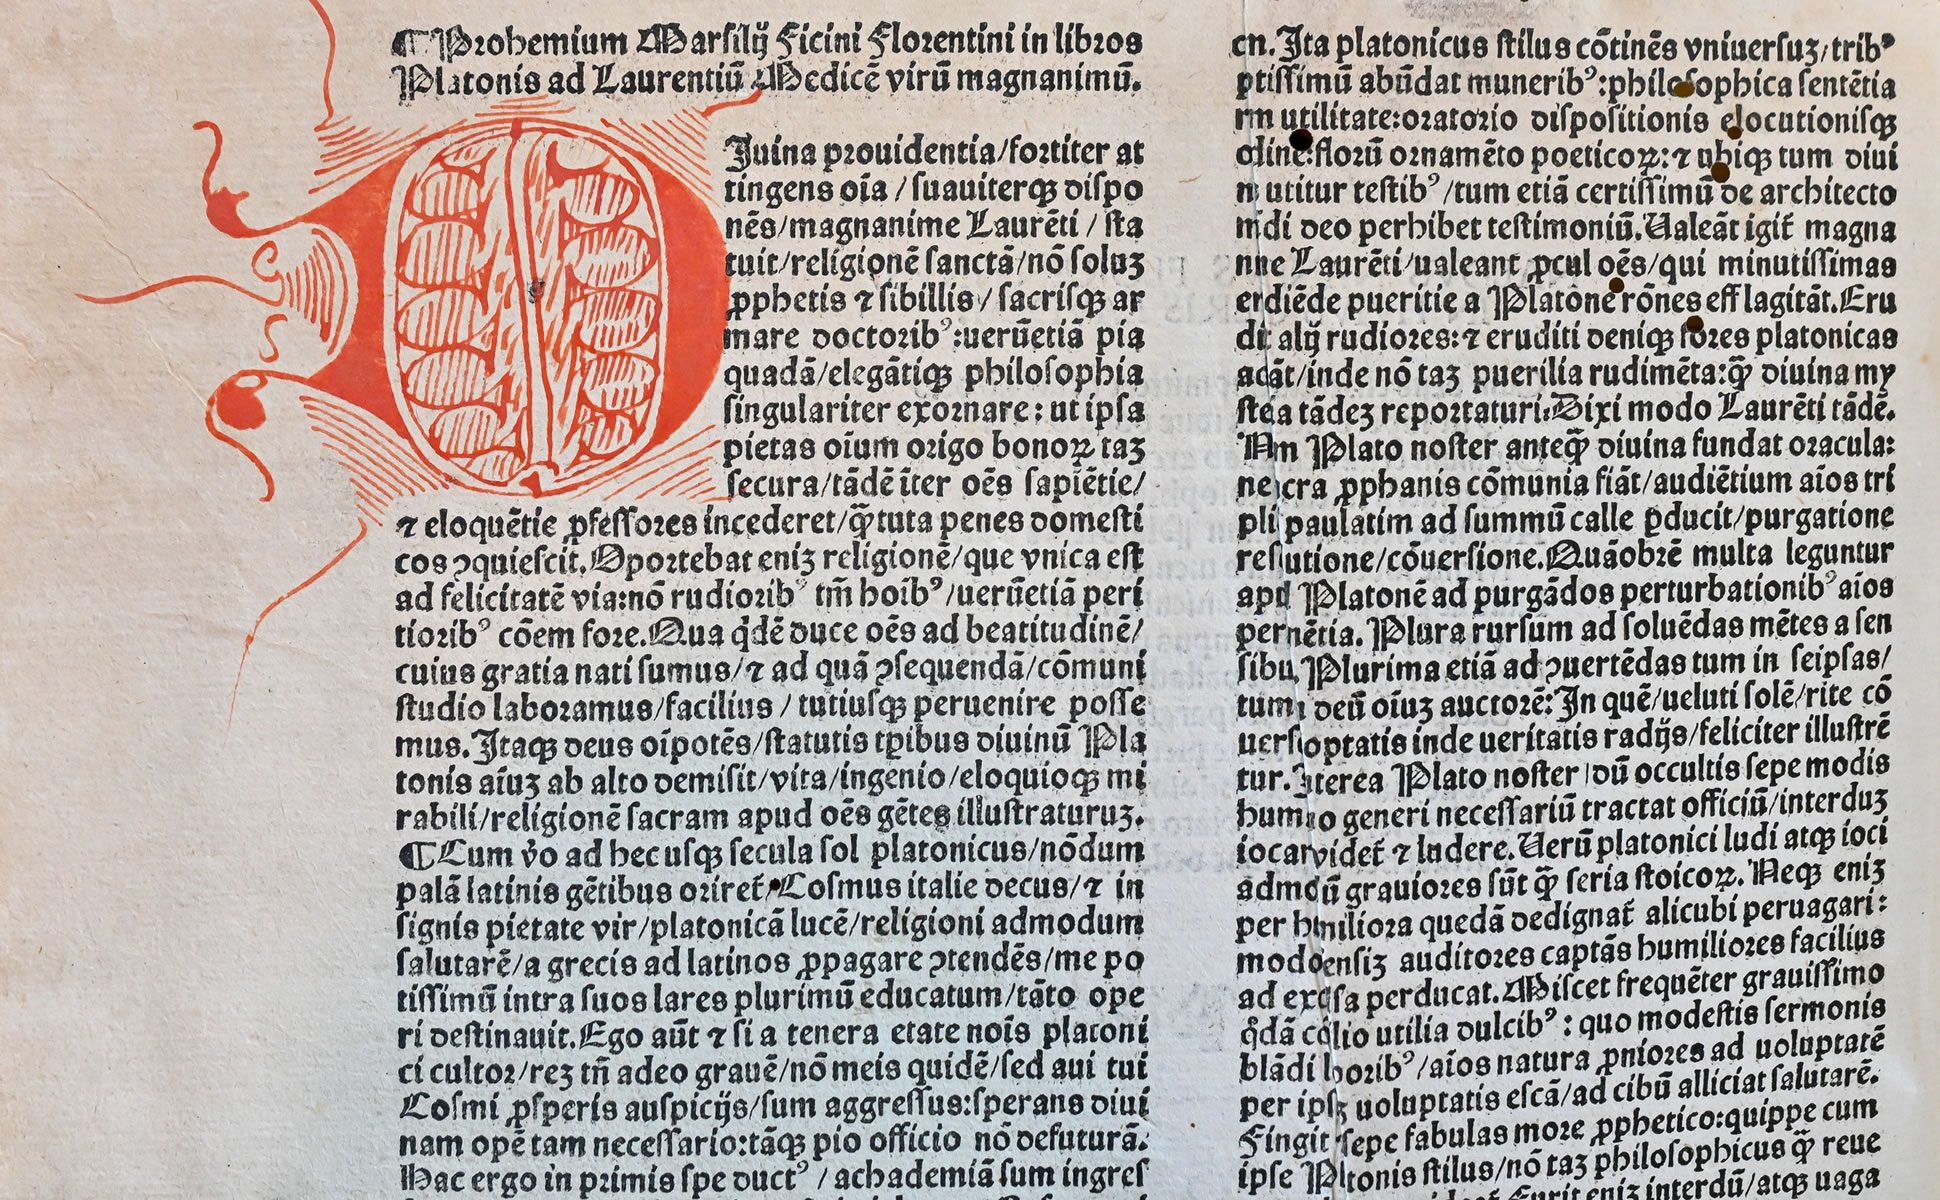 ¶Prohemium Marsilij Ficini Florentini in libros
Platonis ad Laurentiū Medicē virū magnanimū.
DJuina prouidentia/fortiter at
tingens oīa / suauiterqꝫ dispo
nēs/magnanime Laurēti / sta
tuit/religionē sanctā/nō soluꝫ
ꝓphetis ⁊ sibillis/ sacrisqꝫ ar
mare doctoribꝰ:uerūetiā pia
quadā/elegātiqꝫ philosophia
singulariter exornare: ut ipsa
pietas oīum origo bonoꝝ taꝫ
secura/tādē īter oēs sapiētie/
⁊ eloquētie ꝓfessores incederet/ꝙ̄ tuta penes domesti
cos ꝯquiescit. Oportebat eniꝫ religionē/que vnica est
ad felicitatē via:nō rudioribꝰ tm̄ hoībꝰ/uerūetiā peri
tioribꝰ cōem fore. Qua q̇dē duce oēs ad beatitudinē/
cuius gratia nati sumus/⁊ ad quā ꝯsequendā/cōmuni
studio laboramus/facilius / tutiusqꝫ peruenire posse
mus. Itaqꝫ deus oīpotēs/statutis tꝑibus diuinū Pla
tonis aīuꝫ ab alto demisit/vita/ingenio/eloquioqꝫ mi
rabili/religionē sacram apud oēs gētes illustraturuꝫ.
¶Cum v̊o ad hec usqꝫ secula sol platonicus/nōdum
palā latinis gētibus oriret̄ Cosmus italie decus/⁊ in
signis pietate vir/platonicā lucē/religioni admodum
salutarē/a grecis ad latinos ꝓpagare ꝯtendēs/me po
tissimū intra suos lares plurimū educatum/tāto ope
ri destinauit. Ego aūt ⁊ si a tenera etate noīs platoni
ci cultor/reꝫ tn̄ adeo grauē/nō meis quidē/sed aui tui
Cosmi ꝓsperis auspicijs/sum aggressus:sperans diui
nam opē tam necessario:tāqꝫ pio officio nō defuturā.
Hac ergo in primis spe ductꝰ / achademiā sum ingres
cn. Ita platonicus stilus cōtinēs vniuersuꝫ/tribꝰ
ptissimū abūdat muneribꝰ:philosophica sentētia
rm utilitate:oratorio dispositionis elocutionisqꝫ
odine:florū ornamēto poeticoꝝ:⁊ ubiqꝫ tum diui
n utitur testibꝰ/tum etiā certissimū de architecto
mdi deo perhibet testimoniū. Ualeāt igit̄ magna
nme Laurēti/ualeant ꝓcul oēs/qui minutissimas
erdiēde pueritie a Platone rōnes efflagitāt. Eru
dit alij rudiores:⁊ eruditi deniqꝫ fores platonicas
adāt/inde nō taꝫ puerilia rudimēta:ꝙ̄ diuina my
stea tādeꝫ reportaturi. Dixi modo Laurēti tādē.
Nm Plato noster anteꝙ̄ diuina fundat oracula:
ne cra ꝓphanis cōmunia fiāt/audiētium aīos tri
pli paulatim ad summū calle ꝑducit/purgatione
resutione/cōuersione. Quāobrē multa leguntur
apd Platonē ad purgādos perturbationibꝰ aīos
pernētia. Plura rursum ad soluēdas mētes a sen
sibu. Plurima etiā ad ꝯuertēdas tum in seipsas/
tum deū oīuꝫ auctorē: In quē/ueluti solē/rite cō
uersi optatis inde ueritatis radijs/feliciter illustrē
tur. Interea Plato noster dū occultis sepe modis
humno generi necessariū tractat officiū/interduꝫ
iocarvidet̄ ⁊ ludere. Uerū platonici ludi atqꝫ ioci
admdū grauiores sūt ꝙ̄ seria stoicoꝝ. Neqꝫ eniꝫ
per hmiliora quedā dedignat̄ alicubi peruagari:
modoensiꝫ auditores captās humiliores facilius
ad exclsa perducat. Miscet frequēter grauissimo
q̇dā cōlio utilia dulcibꝰ: quo modestis sermonis
blādi loribꝰ/aīos natura ꝓniores ad uoluptatē
per ipsꝫ uoluptatis escā/ad cibū alliciat salutarē.
Fingit sepe fabulas more ꝓphetico:quippe cum
ipse Pltonis stilus/nō taꝫ philosophicus ꝙ̄ reue
Furit eniꝫ interdū/atqꝫ uaga